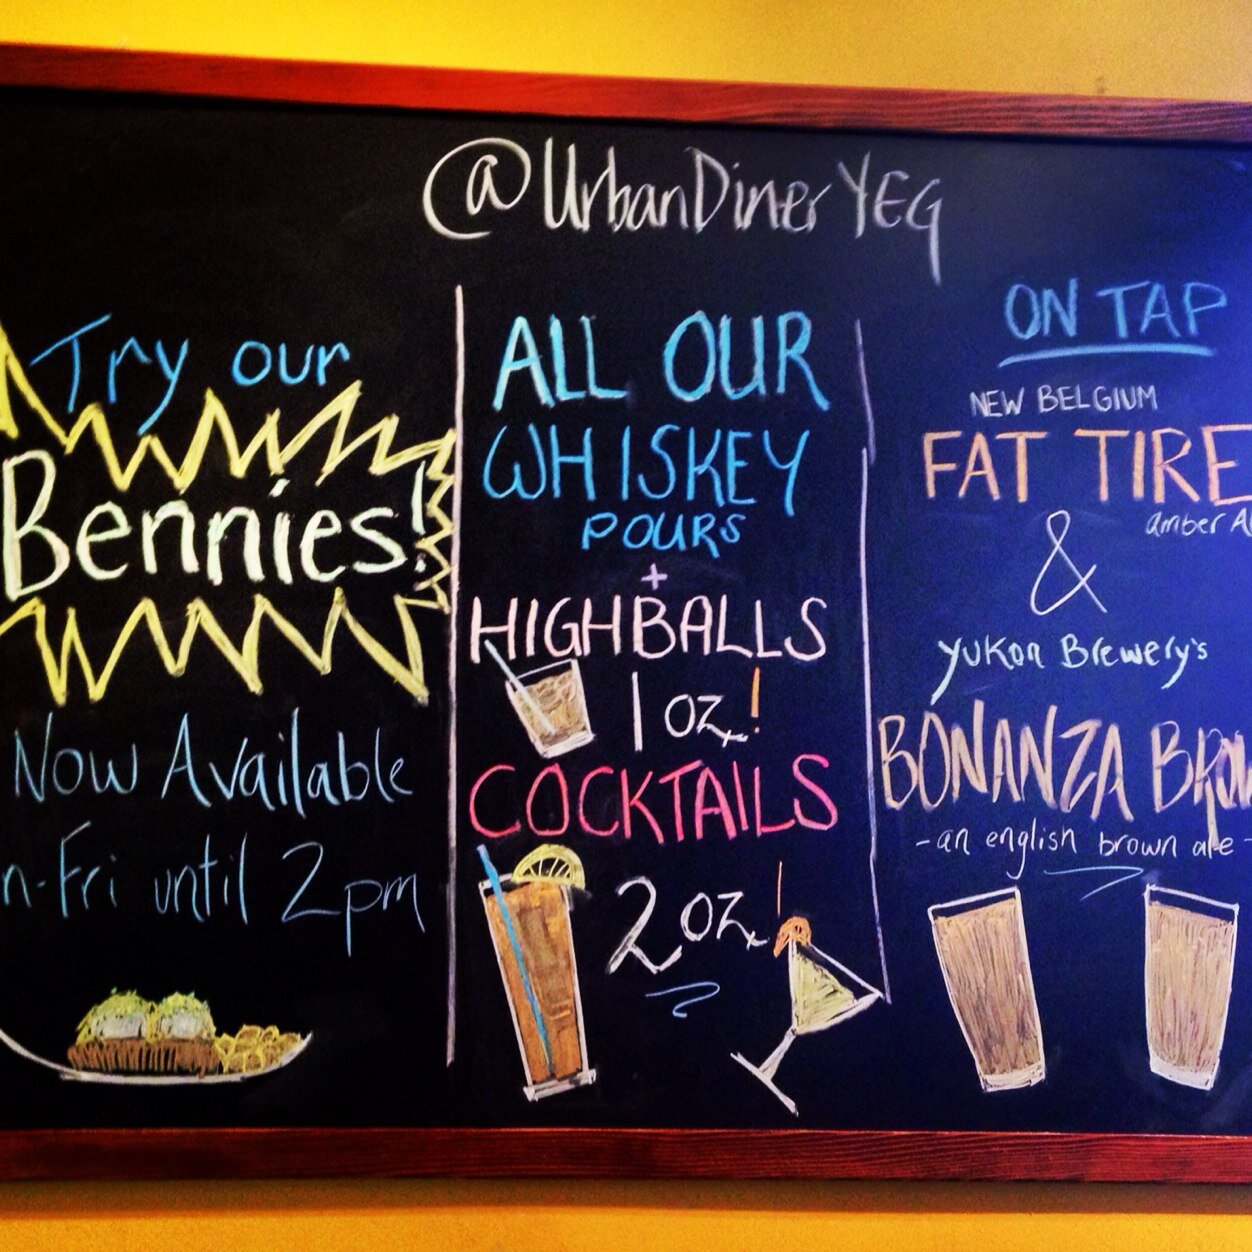 @UrbanDinerYEG
Try our
Bennies!
Now Available
n-Fri until 2pm
ALL OUR
WHISKEY
POURS
+
HIGHBALLS
1oz!
COCKTAILS
2oz!
ON TAP
NEW BELGIUM
FAT TIRE
amber A
&
Yukon Brewery's
BONANZA BROW
-an english brown ale-